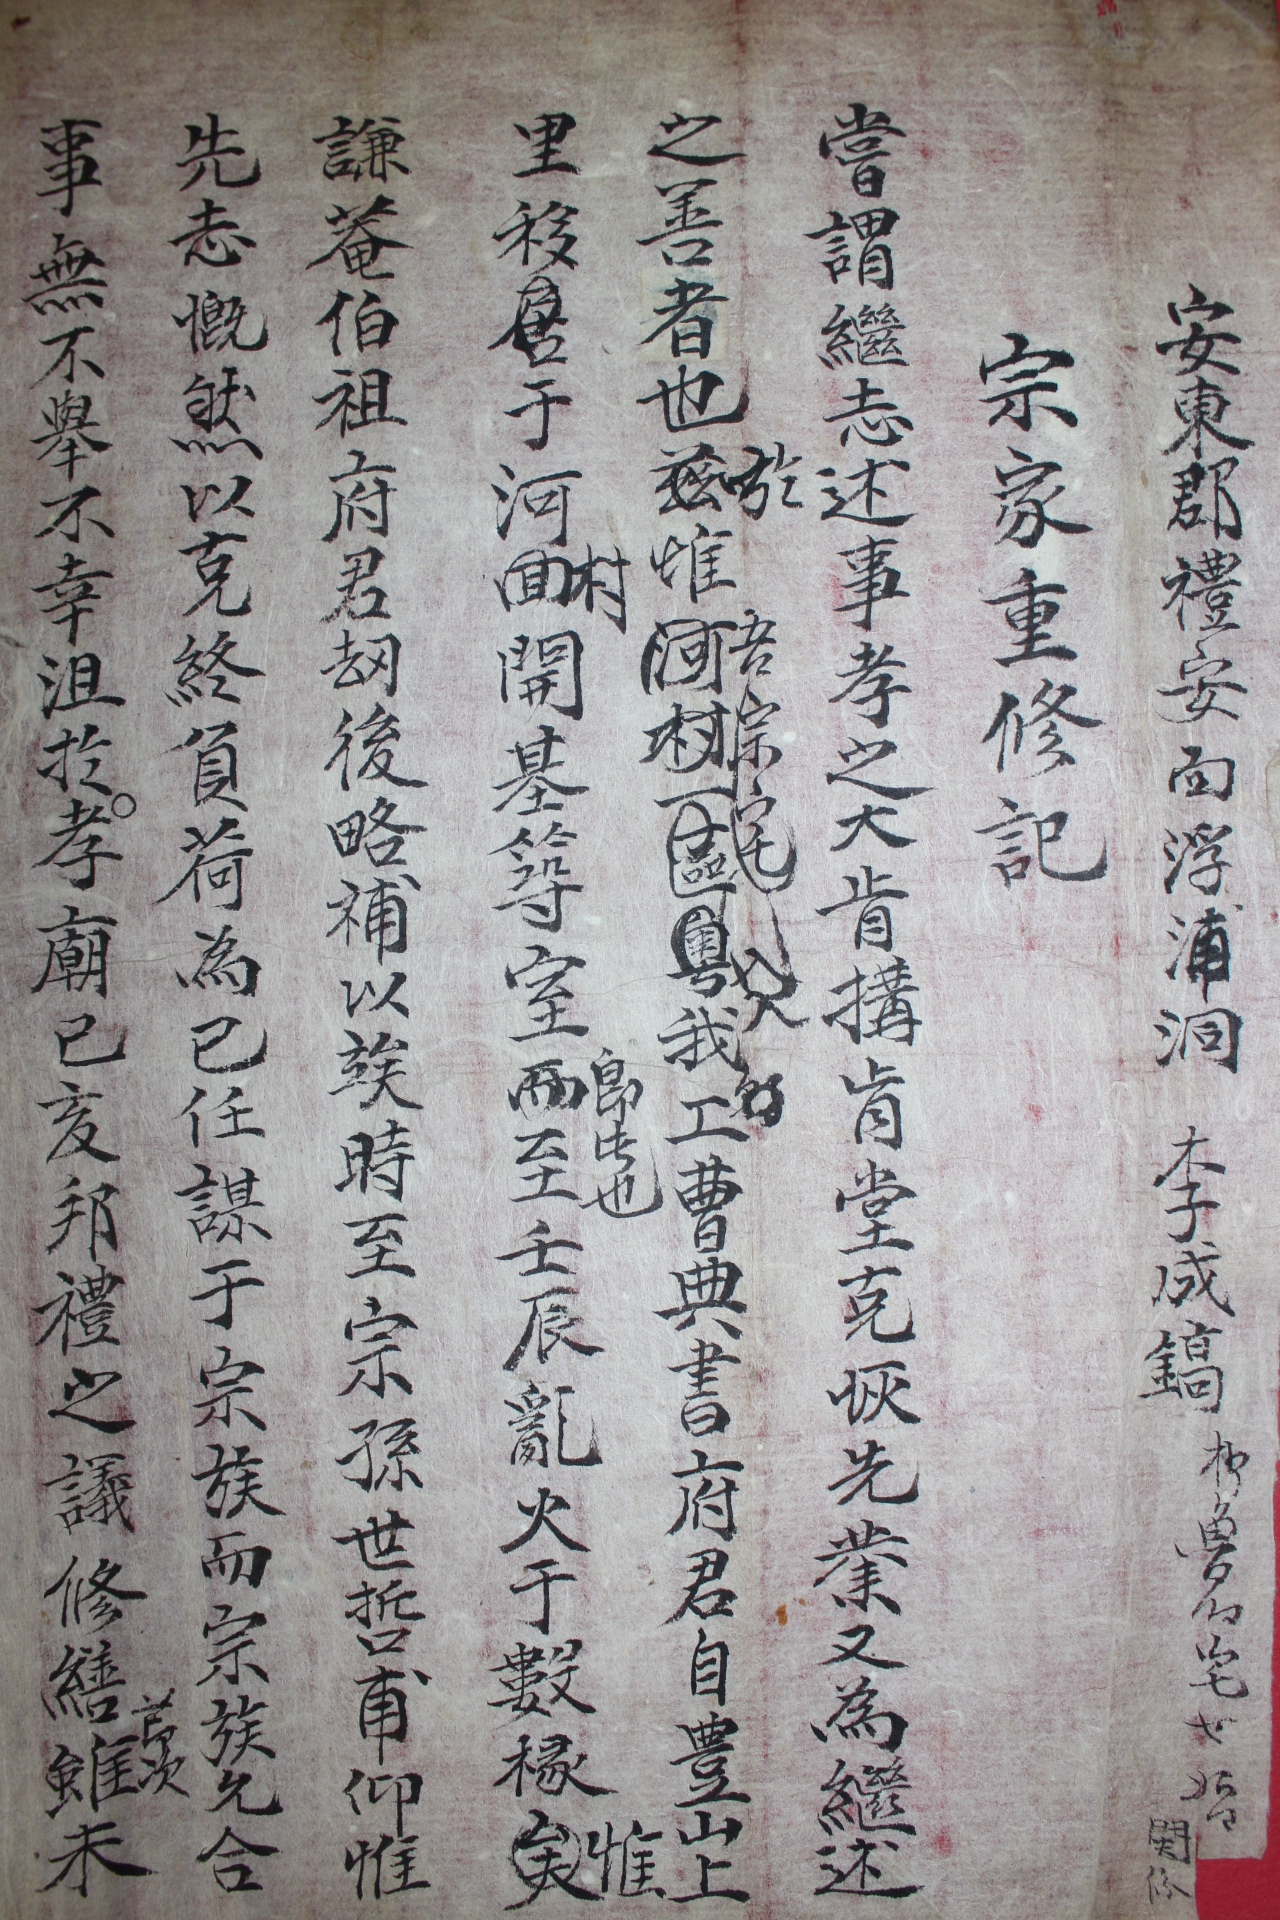 安東郡禮安面浮浦洞 李成鎬
宅
関係
宗家重修記
嘗謂繼志述事孝之大肯搆肯堂克恢先業又為繼述
於
吾宗宅
之善者也玆惟河村一區粤我工曹典書府君自豊山上
村
即此也
惟
里移居于河回開基築室而至壬辰亂火于數椽矣
謙菴伯祖府君刼後略補以竢時至宗孫世哲甫仰惟
先志慨然以克終負荷為己任謀于宗族而宗族允合
事無不舉不幸沮於孝廟己亥邦禮之議修繕雖未